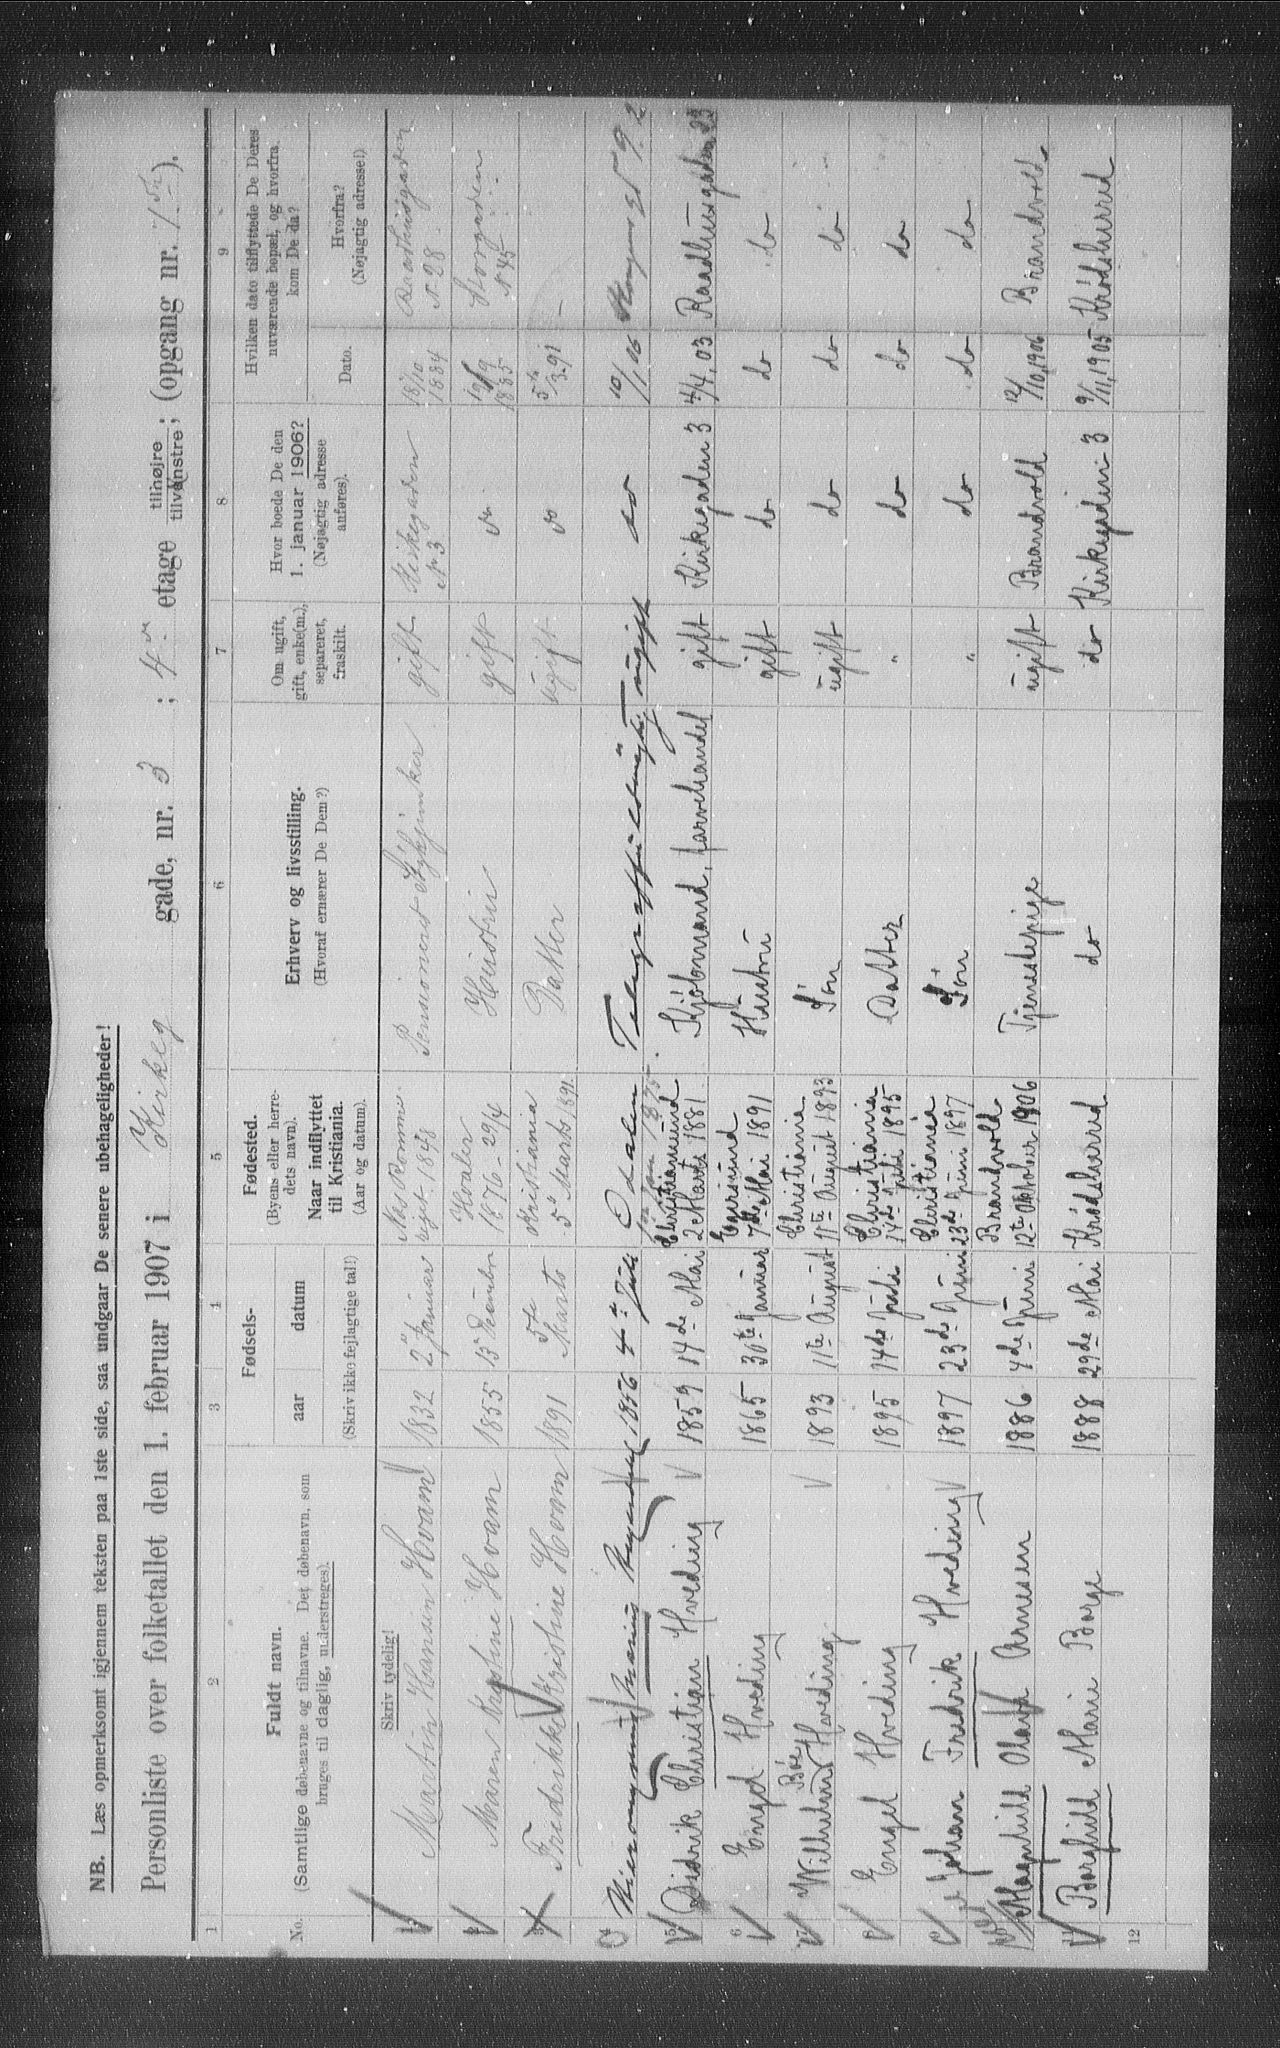 NB. Læs opmerksomt igjennem teksten paa 1ste side, saa undgaar De senere ubehageligheder!
Personliste over folketallet den 1. februar 1907 i Kirkeg gade, nr. 3 ; 4 etage tilhøjre tilvenstre; (opgang nr. ).
1 2 3 4 5 6 7 8 9
No. Fuldt navn. (Samtlige døbenavne og tilnavne. Det døbenavn, som bruges til daglig, understreges). Fødsels- aar datum (Skriv ikke fejlagtige tal!) Fødested. (Byens eller herredets navn). Naar indflyttet til Kristiania. (Aar og datum). Erhverv og livsstilling. (Hvoraf ernærer De Dem?) Om ugift, gift, enke(m.), separeret, fraskilt. Hvor boede De den 1. januar 1906? (Nøjagtig adresse anføres). Hvilken dato tilflyttede De Deres nuværende bopæl, og hvorfra kom De da? Dato. Hvorfra? (Nøjagtig adresse!)
Skriv tydelig!
Martin Hansen Hvam 1832 2 Januar Næs Romme 1848 Pensioneret gift Kirkegaden N 3 18/10 1884 Raadhusgaden N 28
Maren Kristine Hvam 1855 13 Hvaler 1876 - 29/4 Hustru gift do 19/9 1885 Storgaden N 45
Fredrikke Kristine Hvam 1891 5te Marts Kristiania 5 Marts 1891 Datter ugift do 5te/3-91 -
Marius 1856 4 Juli Odalen ugift do 10/1, 06
5 Didrik Christian Hveding 1859 14de Mai Christiansund 2 Marts 1881 Kjøbmand, farvehandel gift Kirkegaden 3 4/4, 03 Raadhusgaden 23
6 Engel Hveding 1865 30te Januar Egersund 7de Mai 1891 Hustru gift do do do
Wilhelm Böe Hveding 1893 11te August Christiania 11te August 1893 Sön ugift do do do
Engel Hveding 1895 14de Juli Christiania 14de Juli 1895 Datter " do do do
Johan Fredrik Hveding 1897 23de Juni Christiania 23de Juni 1897 Sön " do do do
Magnhild Olava Arnesen 1886 4de Juni Brandvold 12te Oktober 1906 Tjenestepige ugift Brandvold 12/10, 1906 Brandvold
11 Borghild Marie Borge 1888 29de Mai Krødsherred do do Kirkegaden 3 9/11, 1905 Krødsherred
12